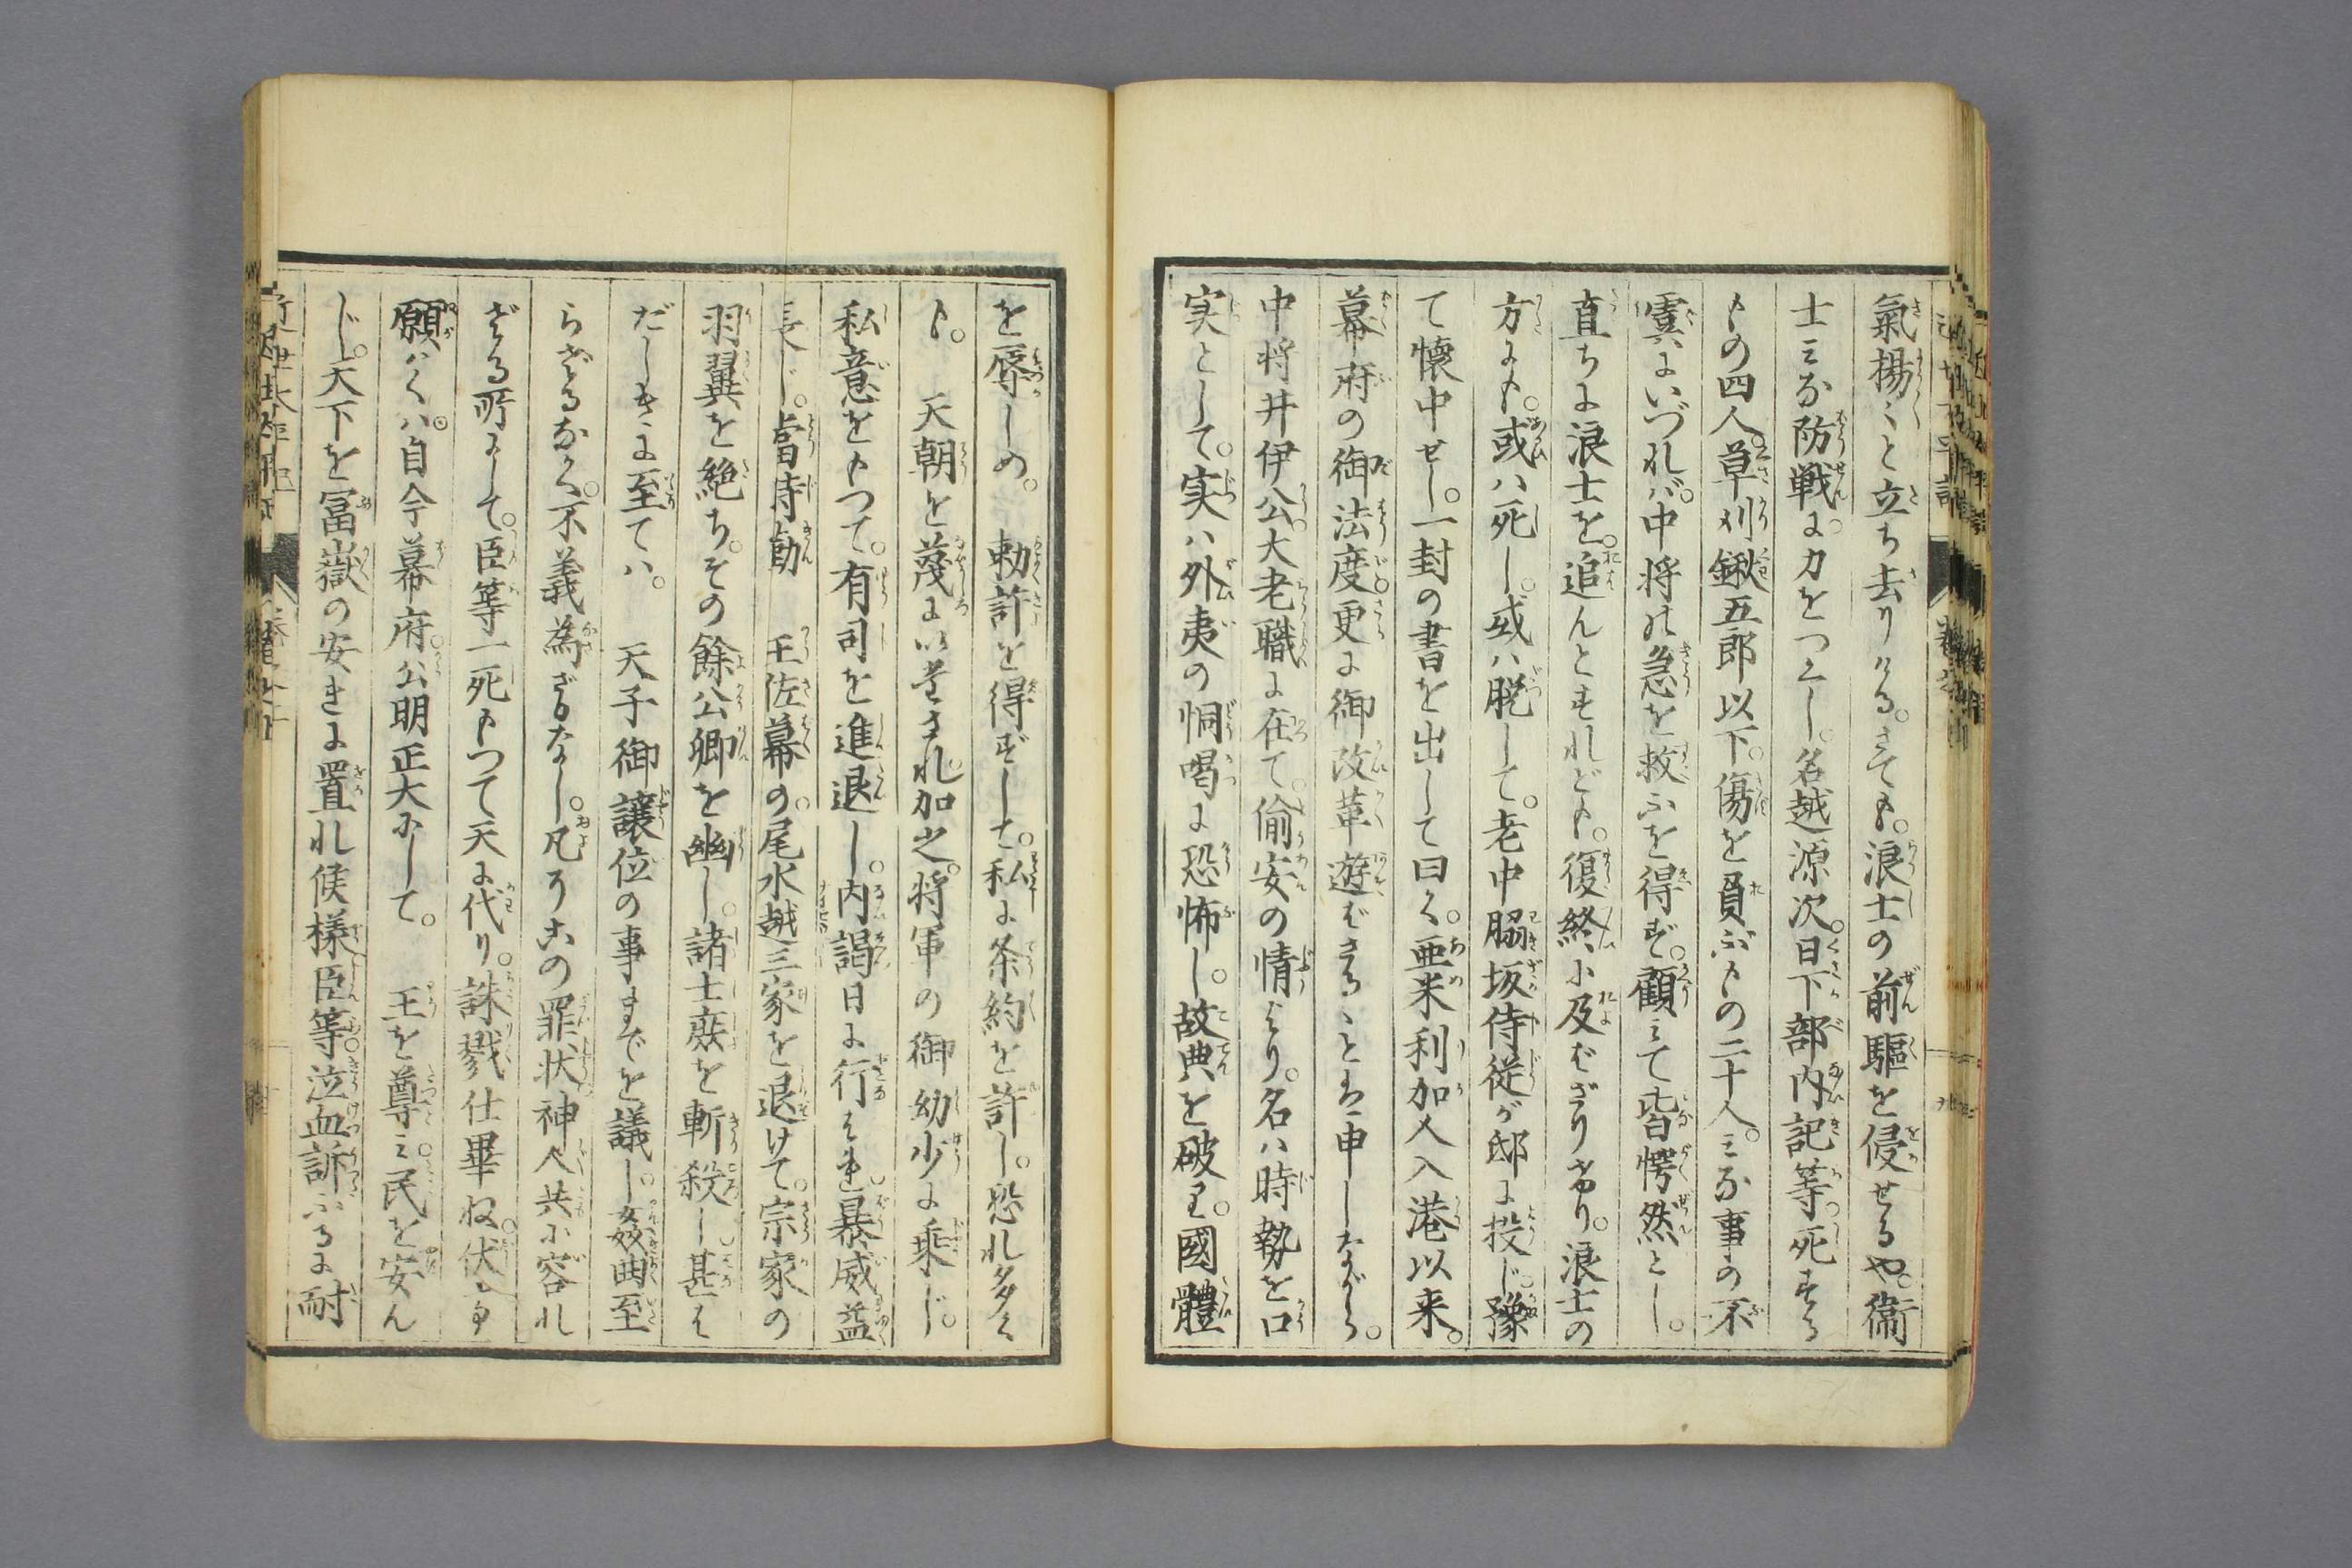 氣揚々と立ち去りける。さても。浪士の前驅を侵せるや。衞
士みな防戦に。力をつくし。名越源次。日下部内記等。死する
もの四人。草刈鍬五郎以下。傷を負ふもの二十人。みな事の不
虞にいづれバ。中将の急を救ふを得ず。顧みて皆愕然とし。
直ちに浪士を。追んとすれども。復終に及ばざりけり。浪士の
方にも。或ハ死し。或ハ脱して。老中脇坂侍従が邸に投じ。豫
て懐中せし。一封の書を出して曰く。亜米利加人入港以来。
幕府の御法度。更に御改革遊ばさるゝとは申しながら。
中将井伊公。大老職に在て。偸安の情より。名ハ時勢を口
実として。実ハ外夷の恫喝に恐怖し。故典を破り。國體
を辱しめ。　勅許を得ずして。私に条約を許し。恐れ多く
も。　天朝を蔑にいたされ。加之。将軍の御幼少に乗じ。
私意をもつて。有司を進退し。内謁日に行はれ。暴威益
長じ。當時勤　王佐幕の。尾水越三家を退けて。宗家の
羽翼を絶ち。その餘公卿を幽し。諸士庶を斬殺し。甚は
だしきに至てハ。　天子御譲位の事までを議し。姦曲至
らざるなく。不義為ざるなし。凡そ此の罪状。神人共に容れ
ざる所にして。臣等一死もつて天に代り。誅戮仕畢ぬ。伏て
願はくハ。自今幕府。公明正大にして。　王を尊み。民を安ん
じ。天下を冨嶽の安きに置れ候様。臣等。泣血訴ふるに耐